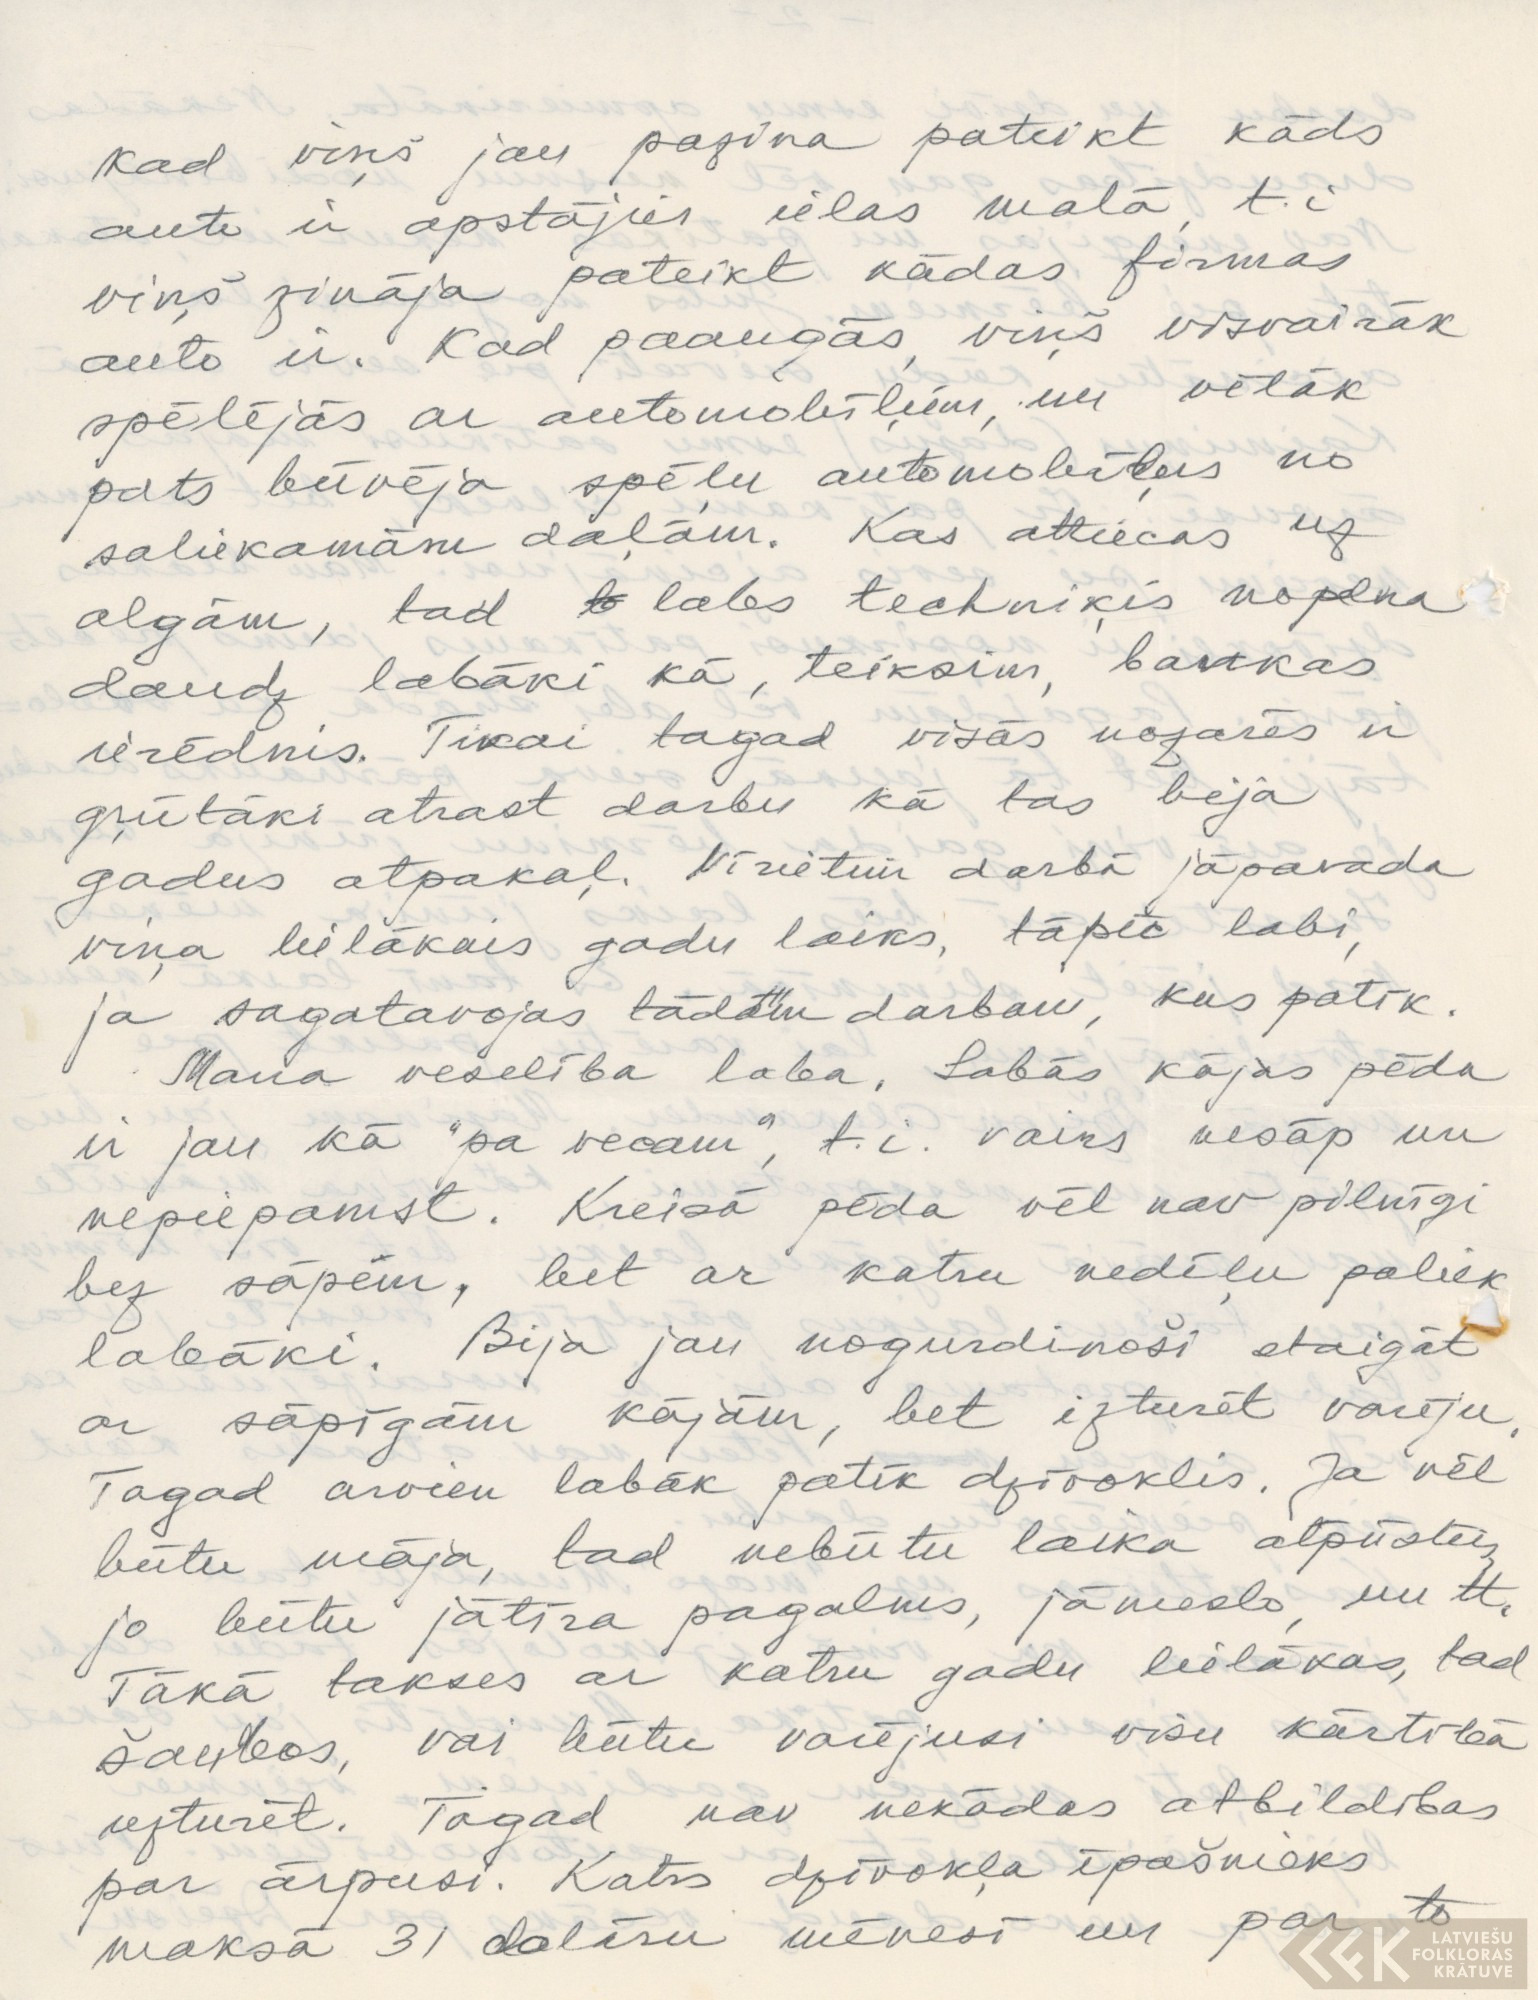 kad viņš jau pazina pateikt kāds
auto ir apstājies ielas malā, t.i
viņš zināja pateikt kādas firmas
auto ir. Kad paaugās, viņš visvairāk
spēlējās ar automobīļiem, un vēlāk
pats būvēja spēļu automobīļus no
saliekamām daļām. Kas attiecas uz
algām, tad labs techniķis nopelna
daudz labāki kā, teiksim, bankas
ierēdnis. Tikai tagad visās nozarēs ir
grūtāki atrast darbu kā tas bija
gadus atpakaļ. Vīrietim darbā jāpavada
viņa lielākais gadu laiks, tāpēc labi,
ja sagatavojas tādam darbam, kas patīk.
Mana veselība laba. Labās kājas pēda
ir jau kā "pa vecam", t.i. vairs nesāp un
nepiepampst. Kreisā pēda vēl nav pilnīgi
bez sāpēm, bet ar katru nedēļu paliek
labāki. Bija jau nogurdinoši staigāt
ar sāpīgām kājām, bet izturēt varēju.
Tagad arvien labāk patīk dzīvoklis. Ja vēl
būtu māja, tad nebūtu laika atpūsties,
jo būtu jātīra pagalms, jāmēslo, un tt.
Tākā takses ar katru gadu lielākas, tad
šaubos, vai būtu varējusi visu kārtībā
uzturēt. Tagad nav nekādas atbildības
par ārpusi. Katrs dzīvokļa īpašnieks
maksā 31 dolāru mēnesī un par to
LATVIEŠU
FOLKLORAS
KRĀTUVE